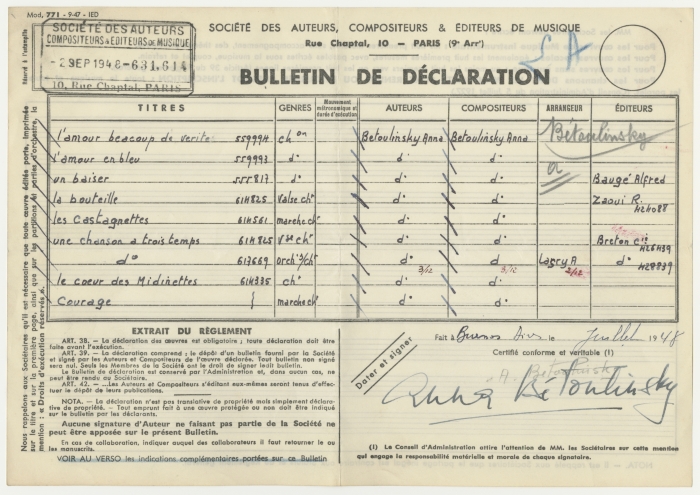 Mod. 771 - 9-47 - IED
SOCIÉTÉ DES AUTEURS
COMPOSITEURS & ÉDITEURS DE MUSIQUE
- 2 SEP 1948 - 631.614
10, Rue Chaptal, PARIS
SOCIÉTÉ DES AUTEURS, COMPOSITEURS & ÉDITEURS DE MUSIQUE
Rue Chaptal, 10 — PARIS (9e Arrt)
BULLETIN DE DÉCLARATION
TITRES GENRES Mouvement métronomique et durée d'exécution AUTEURS COMPOSITEURS ARRANGEUR ÉDITEURS
l'amour beaucoup de verite 559994 chon Betoulinsky Anna Betoulinsky Anna Bétoulinsky
l'amour en bleu 559993 do d° d° a
un baiser 555817 do d° d° Baugé Alfred
la bouteille 614825 valse ch° d° d° Zaoui R.
424088
les Castagnettes 614561 marche ch° d° d°
une chanson a trois temps 614825 Vse ch° d° d° Breton Cie
426439
do 617669 orch 3/ch° d° d° Lasry A d°
3/12 3/12 2/12 428839
le coeur des Midinettes 614335 ch° d° d°
Courage marche ch° d° d°
EXTRAIT DU RÈGLEMENT
ART. 38. — La déclaration des œuvres est obligatoire ; toute déclaration doit être
faite avant l'exécution.
ART. 39. — La déclaration comprend ; le dépôt d'un bulletin fourni par la Société
et signé par les Auteurs et Compositeurs de l'œuvre déclarée. Tout bulletin non signé
sera nul. Seuls les Membres de la Société ont le droit de signer ledit bulletin.
La déclaration est conservée par l'Administration et, dans aucun cas, ne
peut être rendue au Sociétaire.
ART. 42. — ...Les Auteurs et Compositeurs s'éditant eux-mêmes seront tenus d'effec-
tuer le dépôt de leurs publications.
NOTA. — La déclaration n'est pas translative de propriété mais simplement décla-
rative de propriété. - Tout emprunt fait à une œuvre protégée ou non doit être indiqué
sur le bulletin par les déclarants.
Aucune signature d'Auteur ne faisant pas partie de la Société ne
peut être apposée sur le présent Bulletin.
En cas de collaboration, indiquer auquel des collaborateurs il faut retourner le ou
les manuscrits.
VOIR AU VERSO les indications complémentaires portées sur ce Bulletin
Fait à Buenos Aires le Juillet 1948
Certifié conforme et véritable (1)
Dater et signer
Anna Bétoulinsky
(1) Le Conseil d'Administration attire l'attention de MM. les Sociétaires sur cette mention
qui engage la responsabilité matérielle et morale de chaque signataire.
Nous rappelons aux Sociétaires qu'il est nécessaire que toute œuvre éditée porte, imprimée
sur le titre et sur la première page, ainsi que sur les partitions et parties d'orchestre,
mention : « Droits d'exécution réservés ».